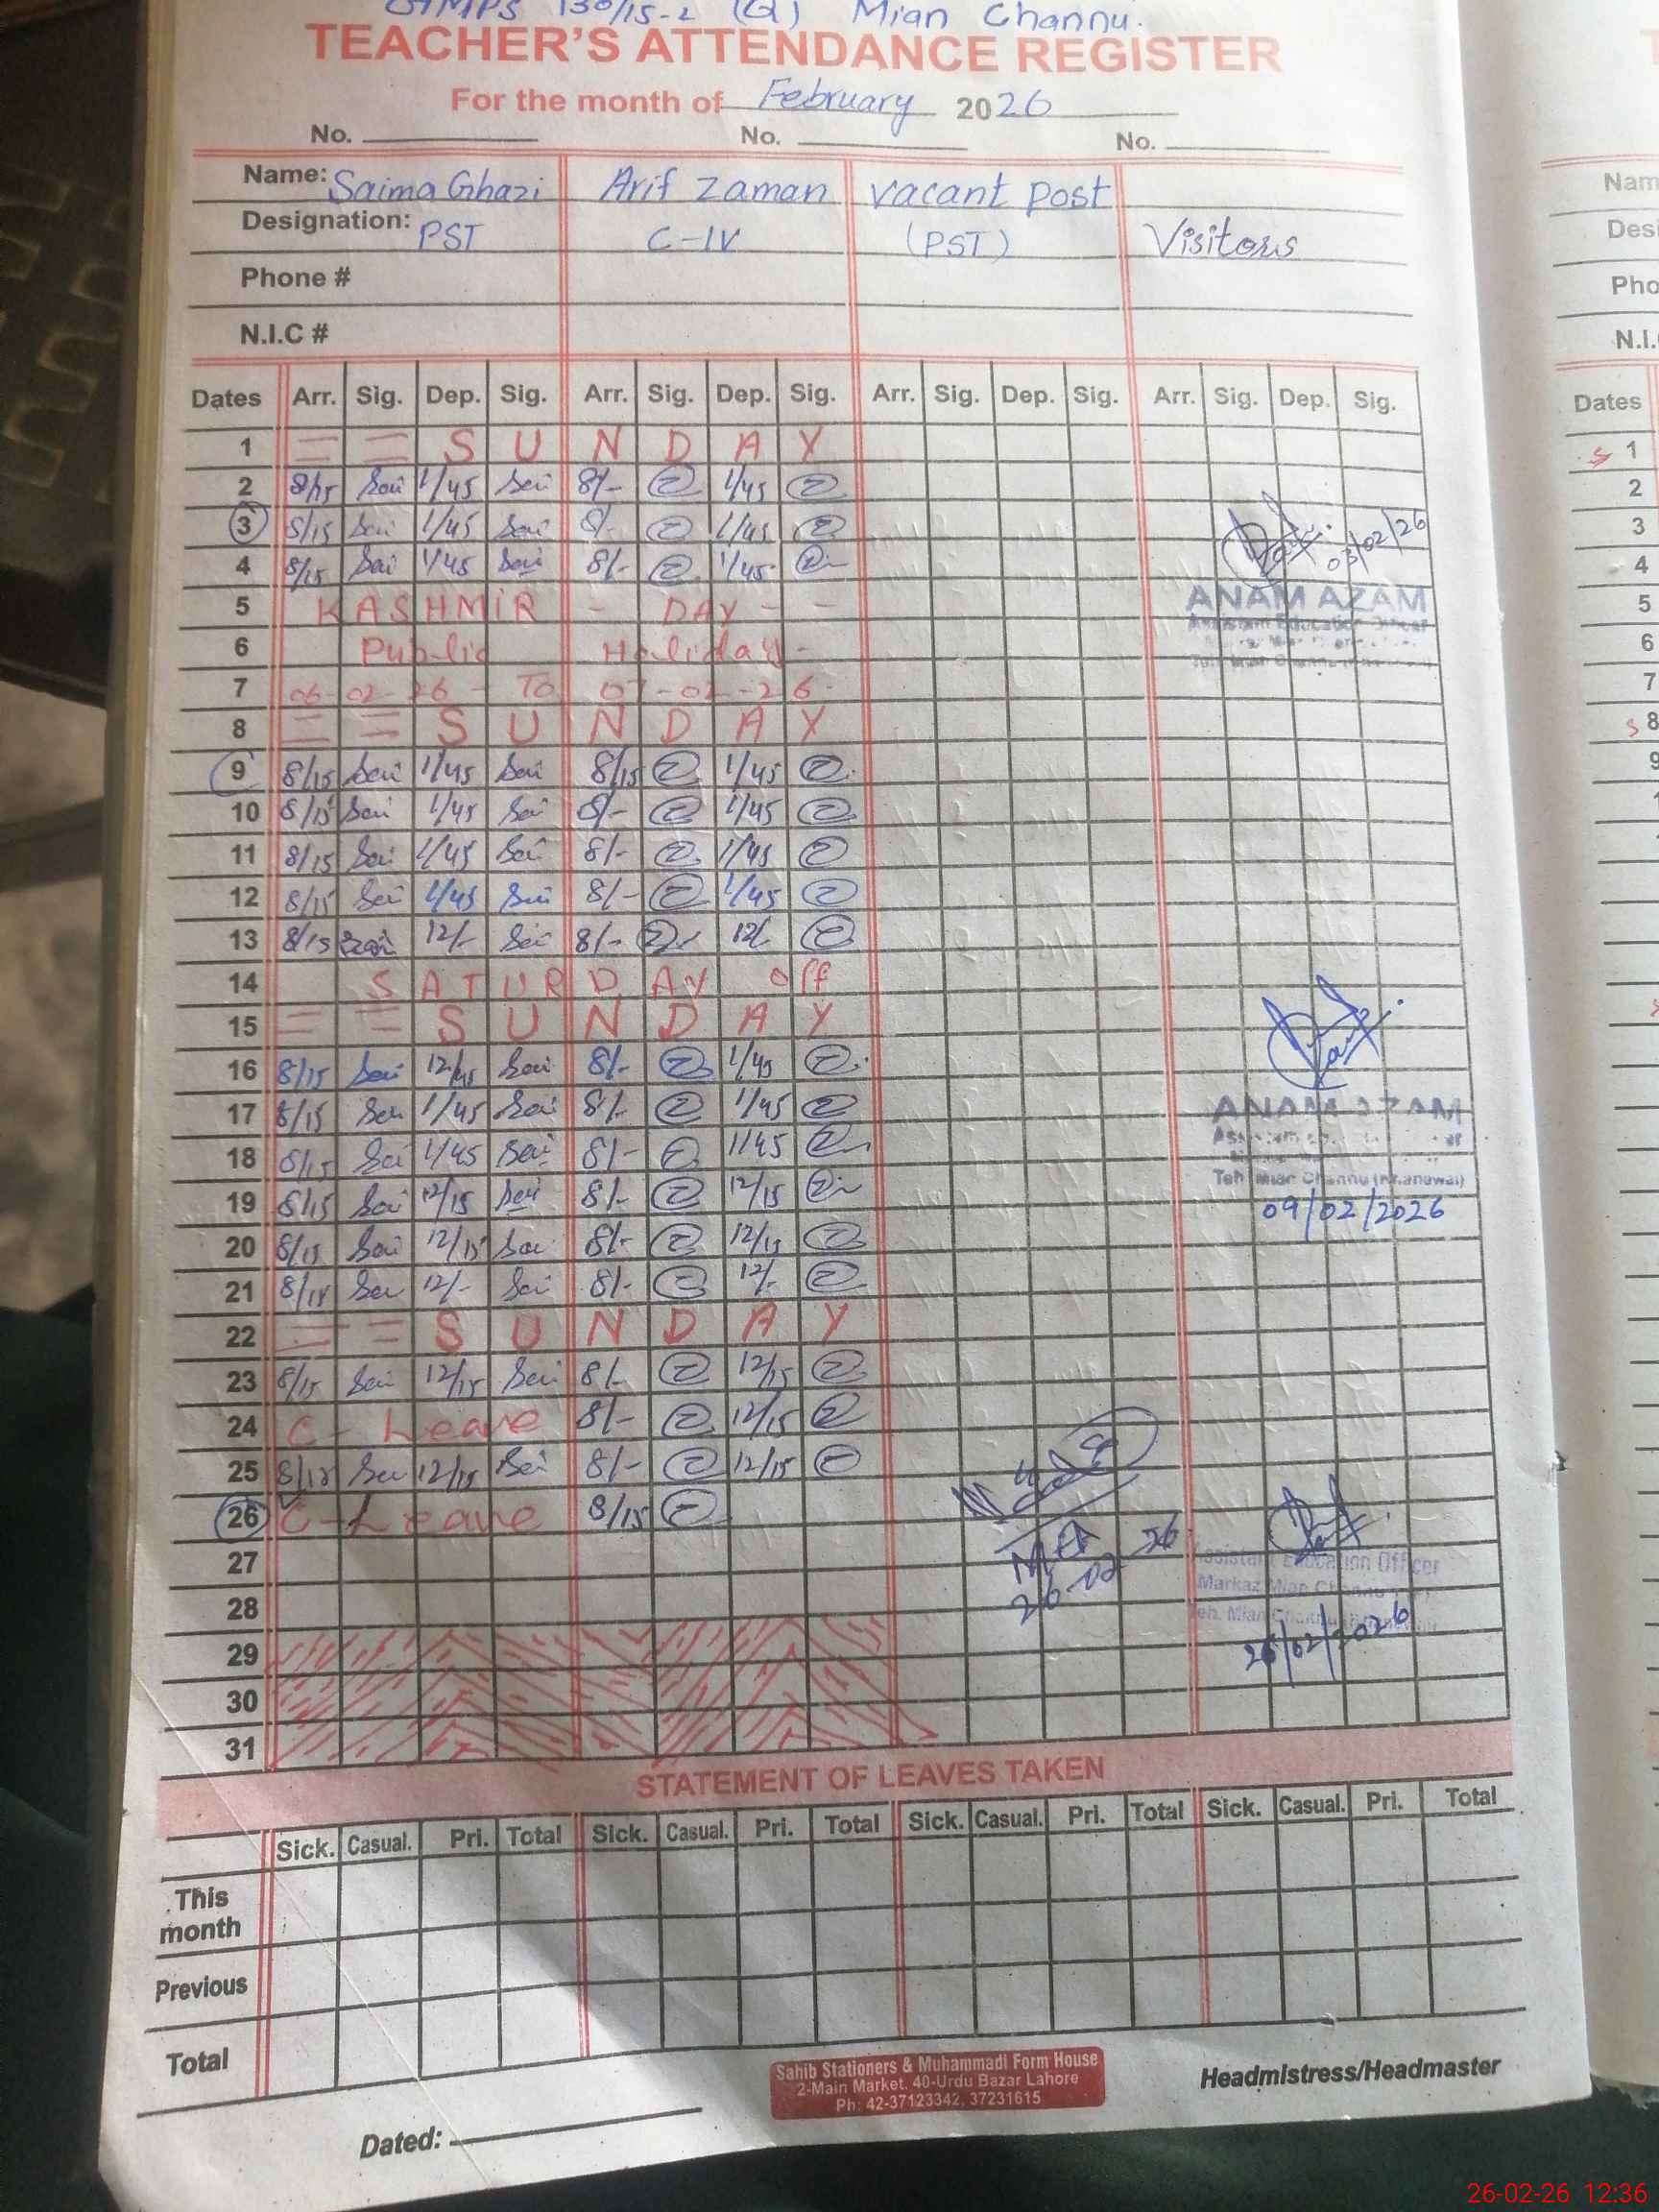 GMPS 130/15-L (Q) Mian Channu.
TEACHER'S ATTENDANCE REGISTER
For the month of February 2026
No. No. No.
Name: Saima Ghazi Arif Zaman vacant post
Designation: PST C-IV (PST) Visitors
Phone #
N.I.C #
Dates Arr. Sig. Dep. Sig. Arr. Sig. Dep. Sig. Arr. Sig. Dep. Sig. Arr. Sig. Dep. Sig.
1 = = S U N D A Y
2 8/15 Sai 1/45 Sai 8/- 1/45
3 8/15 Sai 1/45 Sai 8/- 1/45 03/02/26
4 8/15 Sai 1/45 Sai 8/- 1/45
5 KASHMIR - DAY - -
ANAM AZAM
Assistant Education Officer
6 Public Holiday -
7 06-02-26 - To 07-02-26
8 = = S U N D A Y
9 8/15 Sai 1/45 Sai 8/15 1/45
10 8/15 Sai 1/45 Sai 8/- 1/45
11 8/15 Sai 1/45 Sai 8/- 1/45
12 8/15 Sai 1/45 Sai 8/- 1/45
13 8/15 Sai 12/- Sai 8/- 12/-
14 SATURDAY off
15 = = S U N D A Y
16 8/15 Sai 12/45 Sai 8/- 1/45
17 8/15 Sai 1/45 Sai 8/- 1/45
ANAM AZAM
18 8/15 Sai 1/45 Sai 8/- 1/45
Teh Mian Channu (Khanewal)
19 8/15 Sai 12/15 Sai 8/- 12/15
09/02/2026
20 8/15 Sai 12/15 Sai 8/- 12/15
21 8/15 Sai 12/- Sai 8/- 12/-
22 = = S U N D A Y
23 8/15 Sai 12/15 Sai 8/- 12/15
24 C- Leave 8/- 12/15
25 8/15 Sai 12/15 Sai 8/- 12/15
26 C-Leave 8/15
MEA
26-02-26
27
Assistant Education Officer
Markaz Mian Channu
28
Teh. Mian Channu
26/02/2026
29
30
31
STATEMENT OF LEAVES TAKEN
Sick. Casual. Pri. Total Sick. Casual. Pri. Total Sick. Casual. Pri. Total Sick. Casual. Pri. Total
This month
Previous
Total
Sahib Stationers & Muhammadi Form House
2-Main Market. 40-Urdu Bazar Lahore
Ph: 42-37123342, 37231615
Headmistress/Headmaster
Dated:
Dates
S 1
2
3
4
5
6
7
S 8
9
26-02-26 12:36